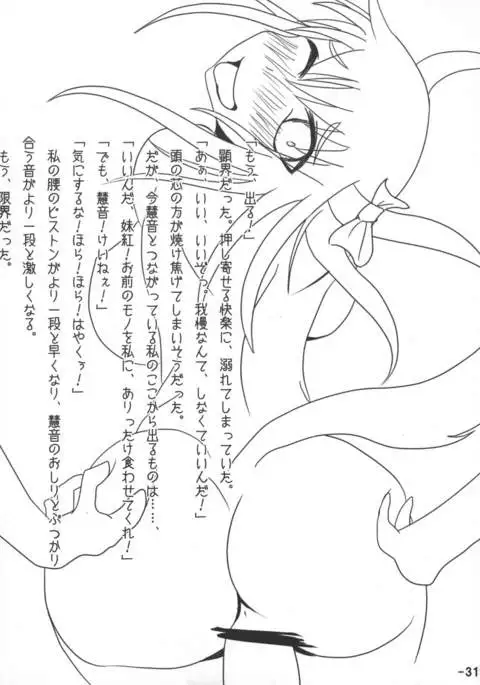 「もう、出る！」
顕界だった。押し寄せる快楽に、溺れてしまっていた。
「あぁ、いい、いいぞっ。我慢なんて、しなくていいんだ！」
頭の芯の方が焼け焦げてしまいそうだった。
だが、今慧音とつながっている私のここから出るものは……、
「いいんだ、妹紅！お前のモノを私に、ありったけ食わせてくれ！」
「でも、慧音！けいねぇ！」
「気にするな！ほら！ほら！はやくぅ！」
私の腰のピストンがより一段と早くなり、慧音のおしりとぶつかり
合う音がより一段と激しくなる。
もう、限界だった。
-31